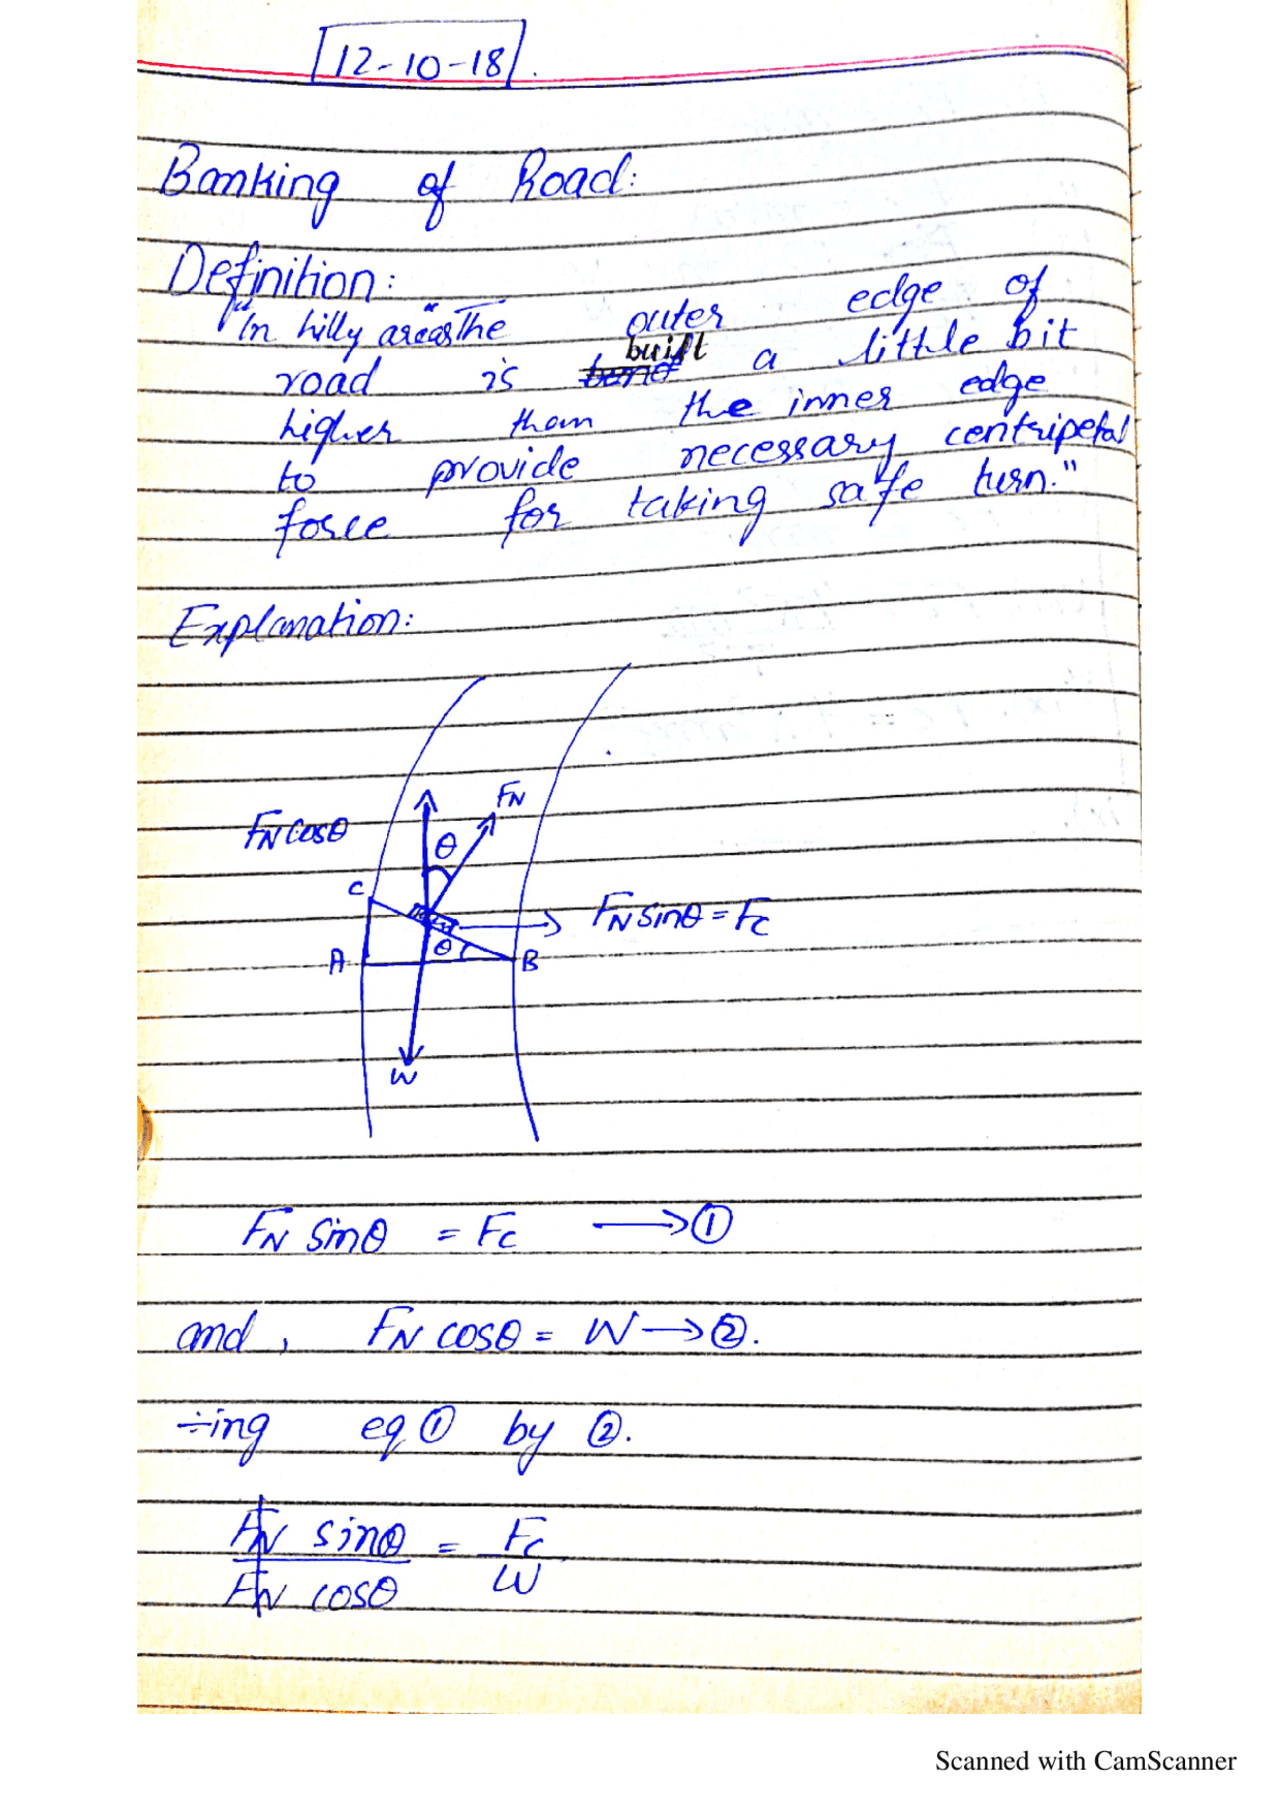 12-10-18.
Banking of Road:
Definition:
"In hilly areas The outer edge of
road is built a little bit
higher than the inner edge
to provide necessary centripetal
force for taking safe turn."
Explanation:
FN
FN cosθ
θ
C
FN sinθ = Fc
θ
A
B
W
FN sinθ = Fc ⟶ ①
and, FN cosθ = W ⟶ ②.
÷ing eq ① by ②.
FN sinθ = Fc
FN cosθ W
Scanned with CamScanner